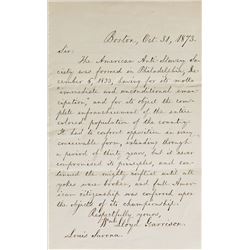 Boston, Oct. 31, 1873.
Sir:
The American Anti-Slavery So-
ciety was formed in Philadelphia, De-
cember 6, 1833, having for its motto
"immediate and unconditional eman-
cipation," and for its object the com-
plete enfranchisement of the entire
colored population of the country.
It had to confront opposition in every
conceivable form, extending through
a period of thirty years, but it never
compromised its principles, and con-
tinued the mighty conflict until all
yokes were broken, and full Amer-
ican citizenship was conferred upon
the objects of its championship.
Respectfully yours,
Wm. Lloyd Garrison.
Louis